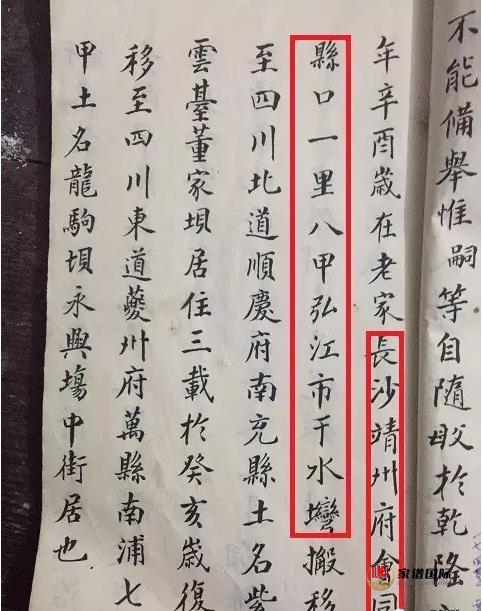 不能備舉惟嗣等自隨於乾隆
年辛酉歲在老家長沙靖州府會同
縣口一里八甲弘江市干水壪搬移
至四川北道順慶府南充縣土名紫
雲臺董家垻居住三載於癸亥歲復
移至四川東道夔州府萬縣南浦七
甲土名龍駒垻永興塲中街居也
家谱国际